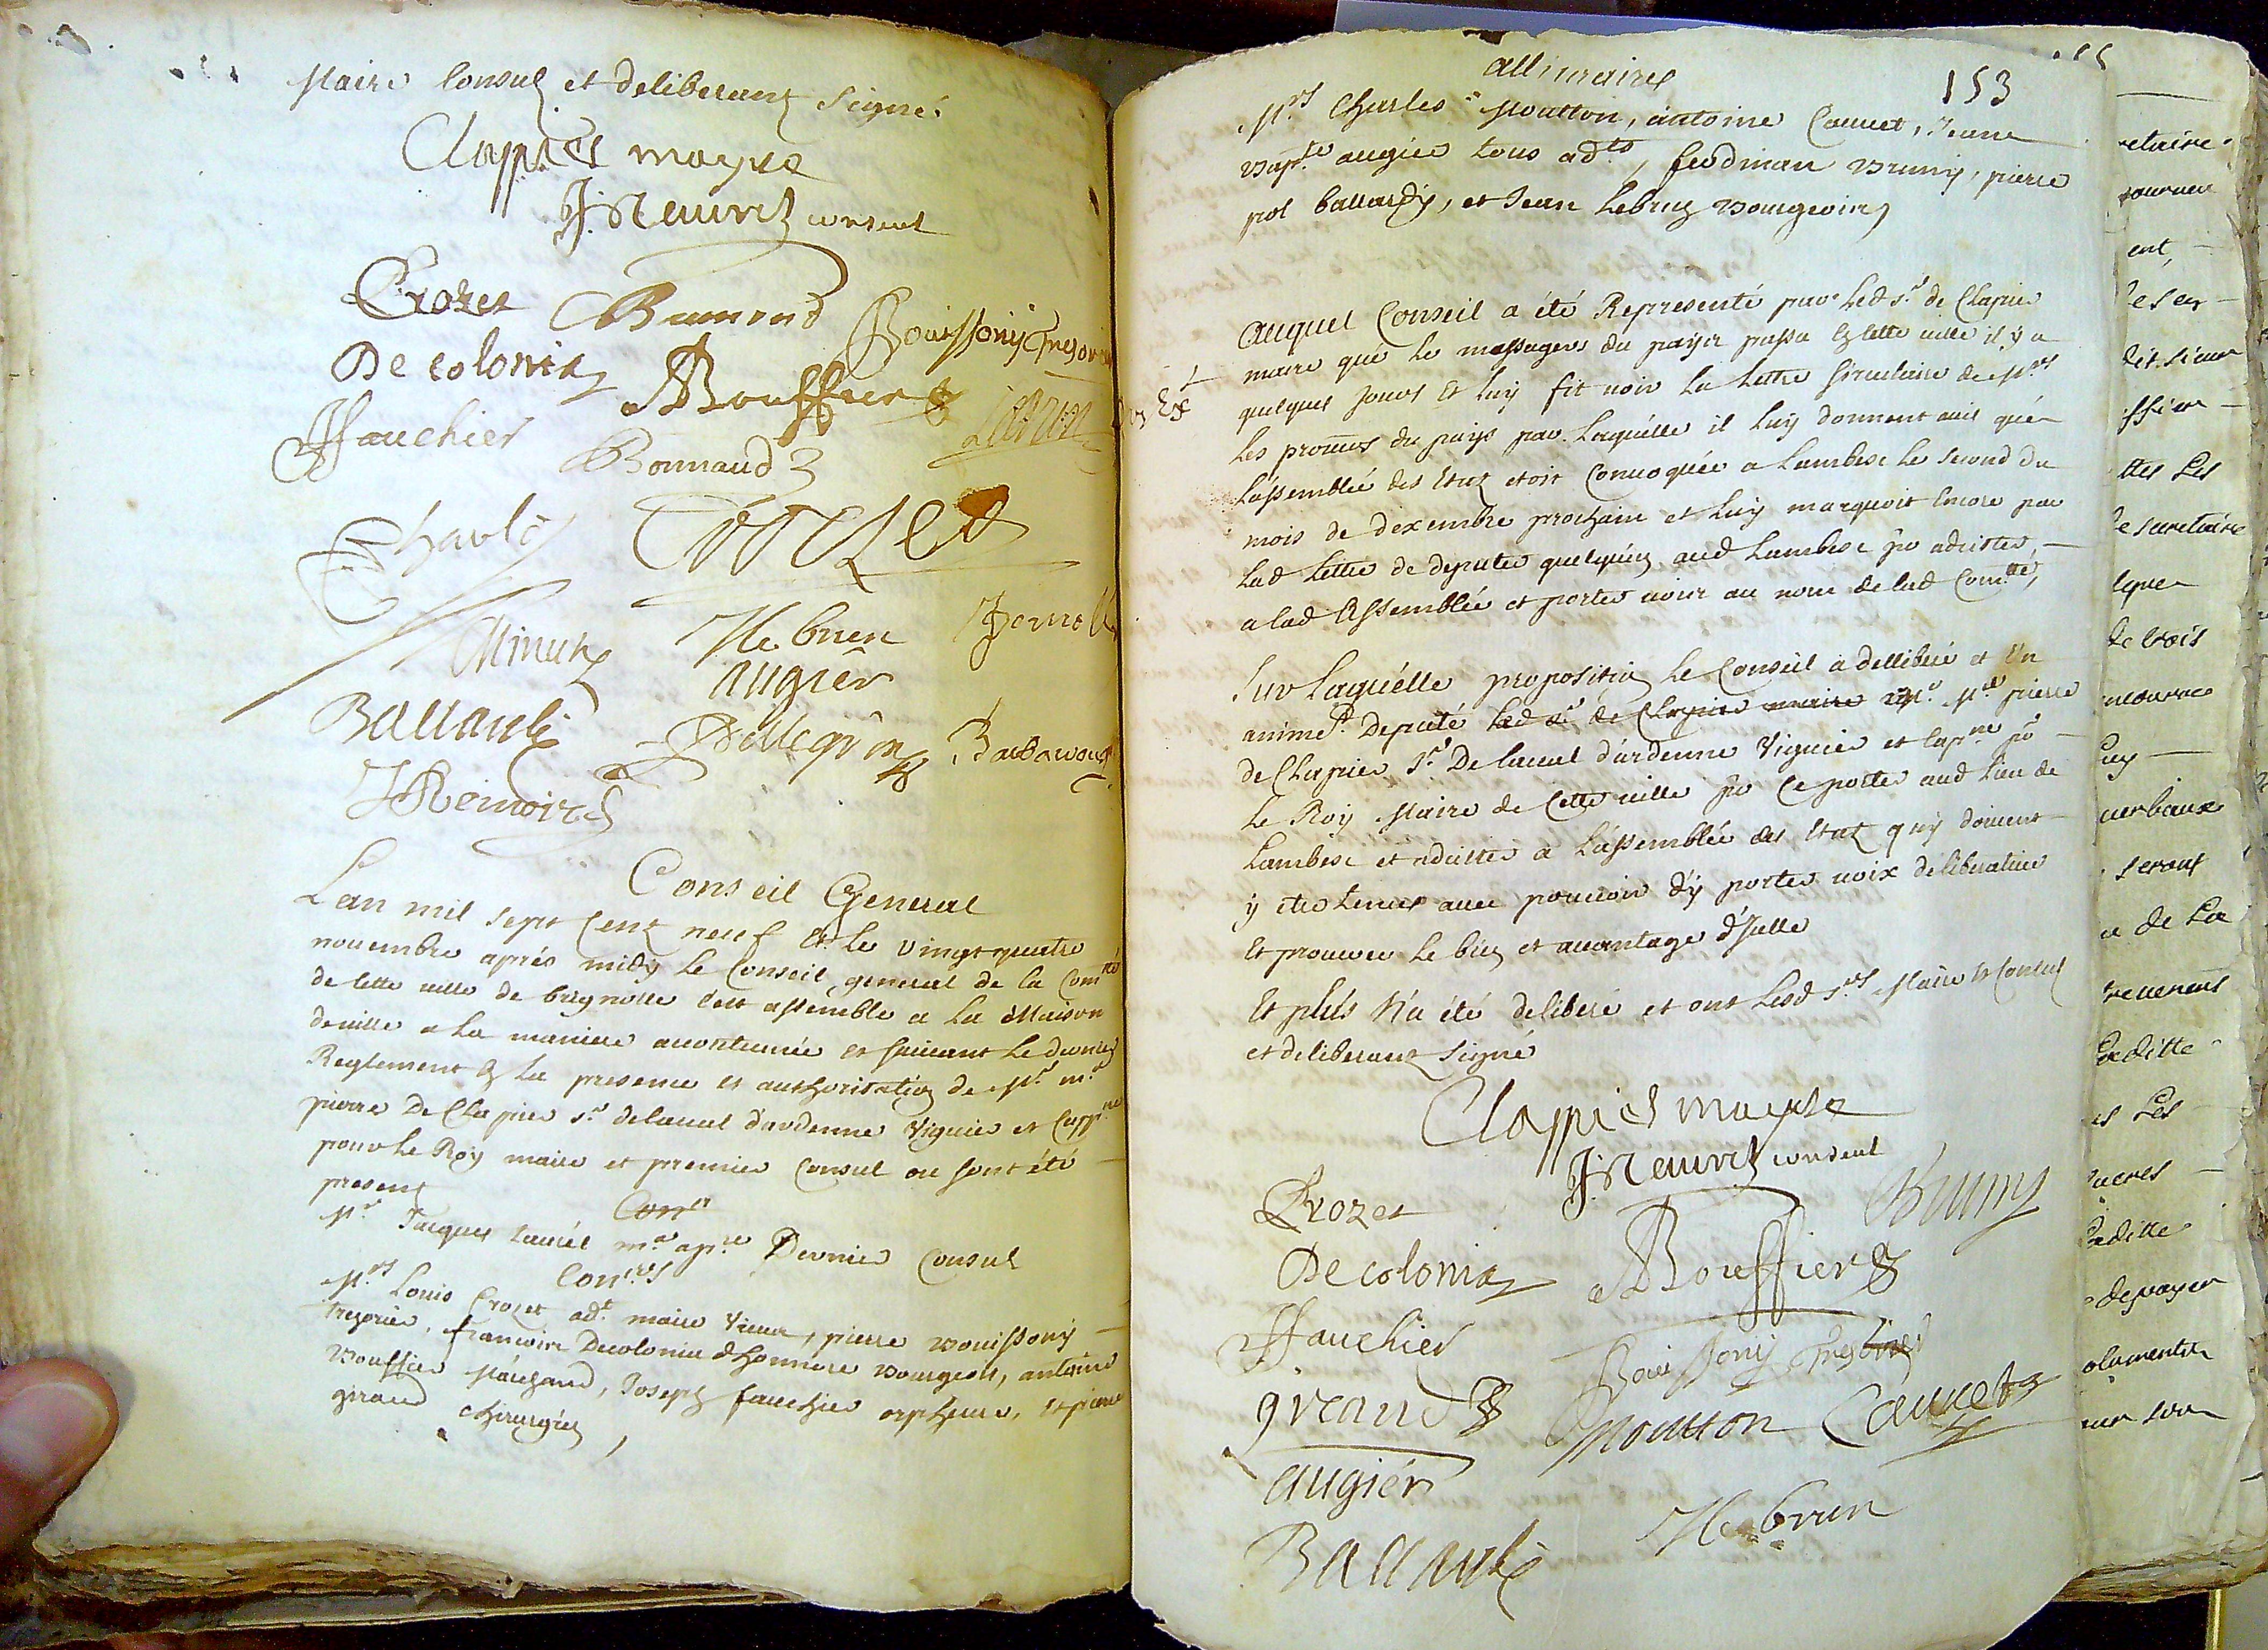 Maire Consuls et deliberants signé
Clappier mayre
J. Neuvris consul
Crozet Brunond Bouissony Tresorier
De colonia ABouffier Lebrun
JFauchier Bonnaud
Charles Crozet
Minuty JLebrun
augier
Ballardy Pellegrin
JRemoire
Conseil General
L'an mil sept cent neuf et le vingt quatre
novembre aprés midy le Conseil general de la Comté
de cette ville de brignolle s'est assemblé a la Maison
deville a la maniere acoutumée et suivant le dernier
Reglement en la presence et authorisation de Mr mre
pierre De Clapier Sr delaval d'ardenne Viguier et Cappne
pour le Roy maire et premier Consul ou sont été
presents
Cons
Mr Jacques me apre Dernier Consul
Conrs
Mrs Louis Crozet adt maire vieux, pierre bouissony
tresorier, francois Decolonia dhonnore bourgeois, antoine
bouffier Marchand, Joseph fauchier orphevre, et pierre
giraud chirurgien,
153
allimaires
Mrs Charles Moutton, antoine Cauvet, Jean
bapte augier tous adts, ferdinan bruny, pierre
pol ballardy, et Jean Lebrun bourgeois
auquel Conseil a été Representé par led sr de Clapier
maire que le messager du payis passa en cette ville il y a
quelques jours et luy fit voir la lettre sirculaire de Mrs
les procurs du pays par laquelle il luy donnent avis que
L'assemblée des Etats etoit convoquée a Lambesc le second du
mois de dexembre prochain et luy marquoit encore par
lad lettre de deputer quelqu'un aud Lambesc po adcister
a lad assemblée et porter voix au nom de lad Comté,
Ex
Sur laquelle proposition le Conseil a dellibéré et un
animet Deputé led sr de Clapier maire Mre pierre
de Clapier Sr De laval d'ardenne Viguier et Capne po
le Roy Maire de Cette ville po ce porter aud lieu de
Lambesc et adcister a L'assemblée des Etats quy doivent
y etre tenus avec pouvoir d'y porter voix deliberative
Et procurer le bien et avantage d'Jcelle
Et plus n'a été deliberé et ont lesd srs Maire et Consul
et deliberants signé
Clappier mayre
J. Neuvris consul
Crozet Bruny
De colonia ABouffier
JFauchier Bouissony Tresorier
giraud Moutton Cauvet
augier
Ballardy JLebrun
retaire
ent,
ttes Les
le secretaire
de trois
verbaux
seront
de La
Laditte
es Les
Laditte
depayer